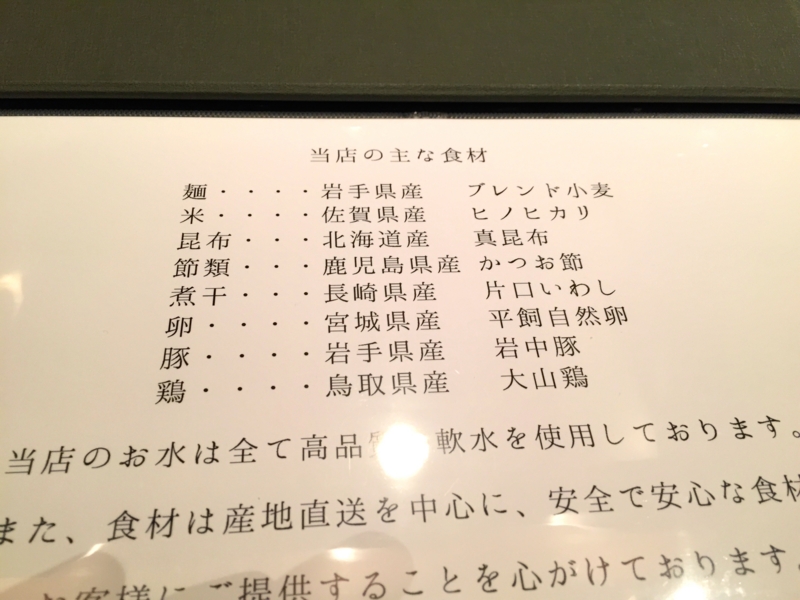 当店の主な食材
麺・・・・岩手県産 ブレンド小麦
米・・・・佐賀県産 ヒノヒカリ
昆布・・・北海道産 真昆布
節類・・・鹿児島県産 かつお節
煮干・・・長崎県産 片口いわし
卵・・・・宮城県産 平飼自然卵
豚・・・・岩手県産 岩中豚
鶏・・・・鳥取県産 大山鶏
当店のお水は全て高品質 軟水を使用しております。
また、食材は産地直送を中心に、安全で安心な食材
お客様にご提供することを心がけております。